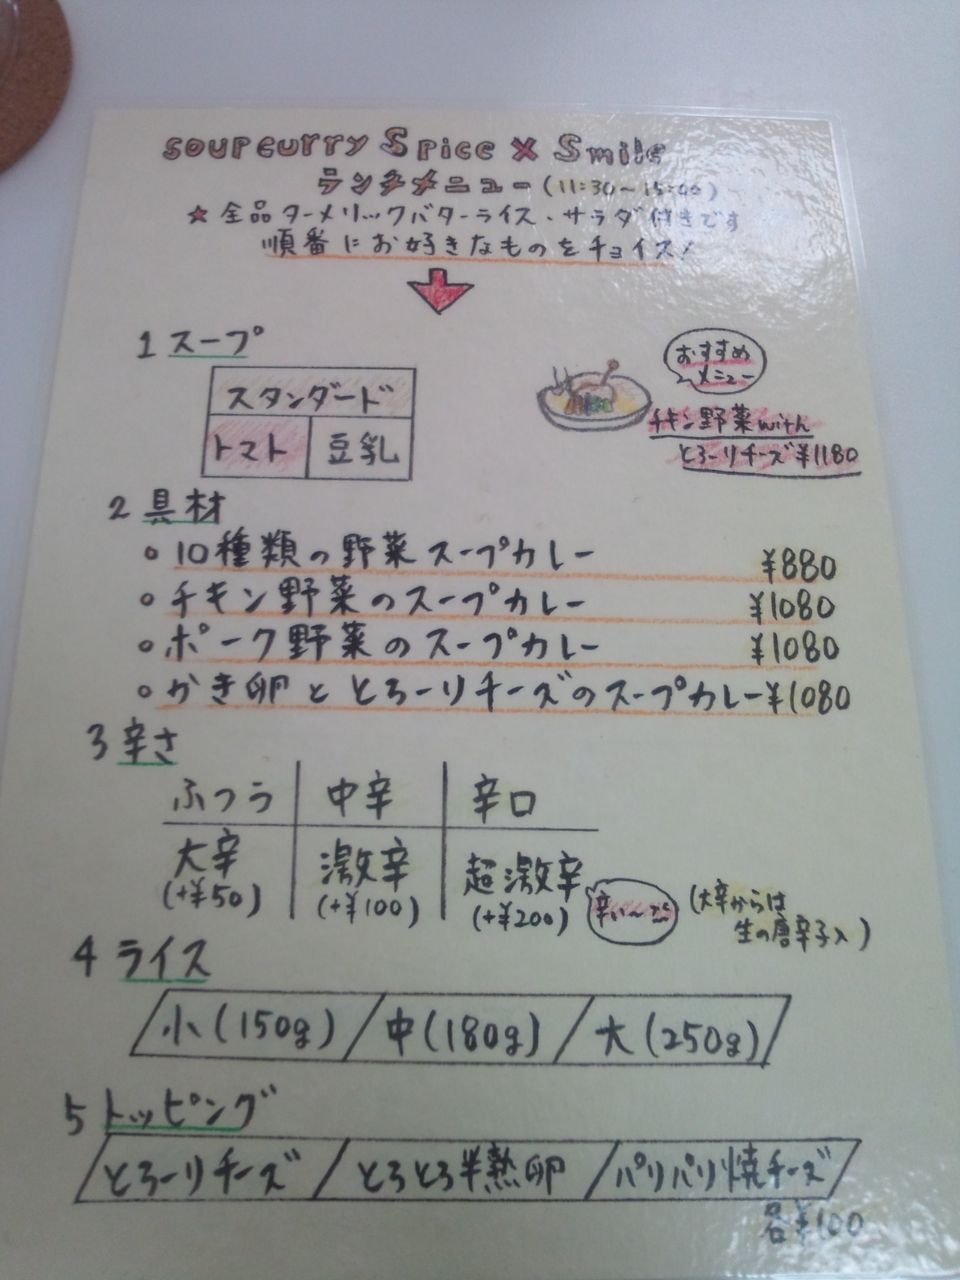 soup curry Spice × Smile
ランチメニュー(11:30〜15:00)
★全品ターメリックバターライス・サラダ付きです
順番にお好きなものをチョイス!
1 スープ
スタンダード
トマト 豆乳
おすすめ
メニュー
チキン野菜with
とろーりチーズ¥1180
2 具材
10種類の野菜スープカレー ¥880
チキン野菜のスープカレー ¥1080
ポーク野菜のスープカレー ¥1080
かき卵ととろーりチーズのスープカレー ¥1080
3 辛さ
ふつう 中辛 辛口
大辛 激辛 超激辛
(+¥50) (+¥100) (+¥200)
辛い〜
(大辛からは
生の唐辛子入)
4 ライス
小(150g) 中(180g) 大(250g)
5 トッピング
とろーりチーズ とろとろ半熟卵 パリパリ焼チーズ
各¥100